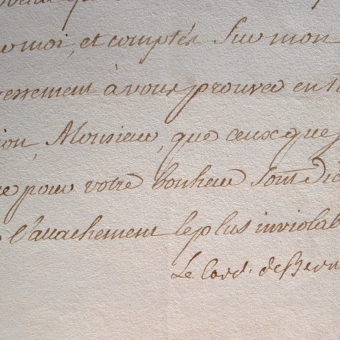 moi, et comptés Sur mon
ressement à vous prouver en to
ion, Monsieur, que ceux que j
pour votre bonheur Sont Dic
l'attachement le plus inviolab
Le Card. de Bern